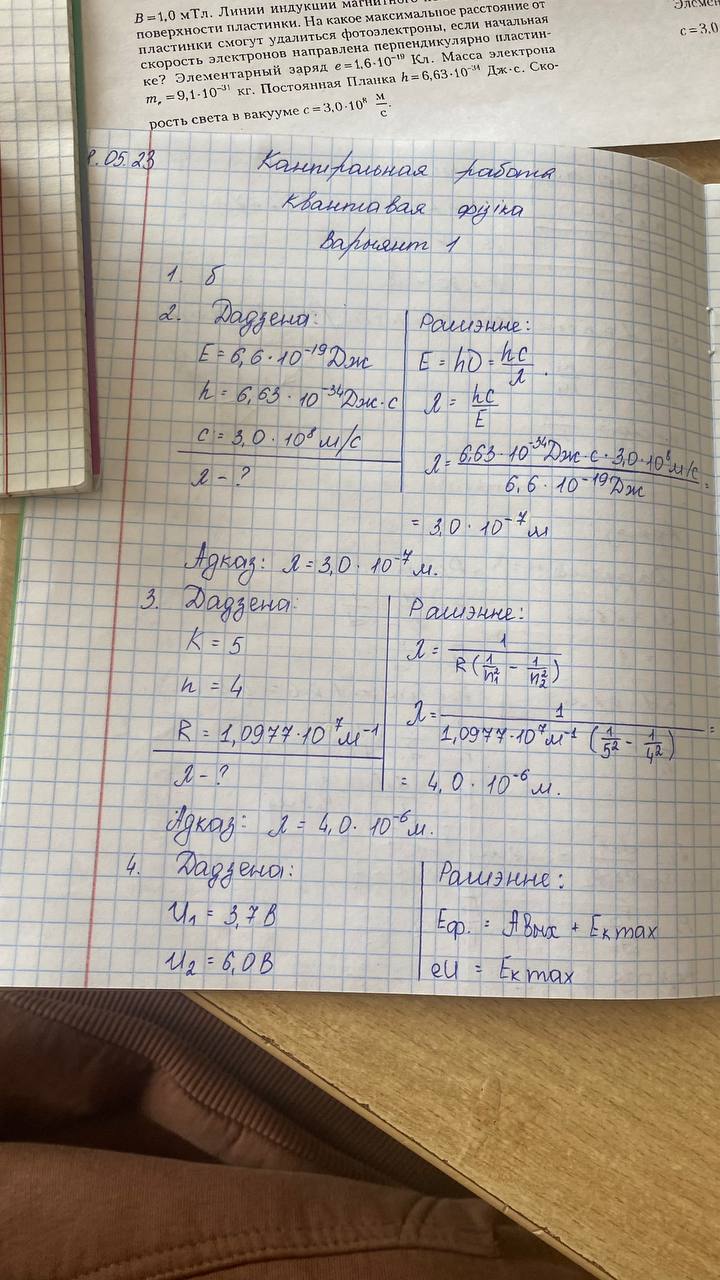 B = 1,0 мТл. Линии индукции
поверхности пластинки. На какое максимальное расстояние от
пластинки смогут удалиться фотоэлектроны, если начальная
скорость электронов направлена перпендикулярно пластин-
ке? Элементарный заряд e = 1,6·10⁻¹⁹ Кл. Масса электрона
mₑ = 9,1·10⁻³¹ кг. Постоянная Планка h = 6,63·10⁻³⁴ Дж·с. Ско-
рость света в вакууме c = 3,0·10⁸ м/с.
c = 3,0
.05.23
Кантрольная работа
Квантавая фізіка
Варыянт 1
1. б
2. Дадзена:
E = 6,6 · 10⁻¹⁹ Дж
h = 6,63 · 10⁻³⁴ Дж·с
c = 3,0 · 10⁸ м/с
λ - ?
Рашэнне:
E = hν = hc/λ.
λ = hc/E
λ = 6,63 · 10⁻³⁴ Дж·с · 3,0·10⁸ м/с / 6,6 · 10⁻¹⁹ Дж =
= 3,0 · 10⁻⁷ м
Адказ: λ = 3,0 · 10⁻⁷ м.
3. Дадзена:
K = 5
n = 4
R = 1,0977·10⁷ м⁻¹
λ - ?
Рашэнне:
λ = 1 / R(1/n₁² - 1/n₂²)
λ = 1 / 1,0977·10⁷ м⁻¹ (1/5² - 1/4²) =
= 4,0 · 10⁻⁶ м.
Адказ: λ = 4,0 · 10⁻⁶ м.
4. Дадзена:
U₁ = 3,7 В
U₂ = 6,0 В
Рашэнне:
Eф. = Aвых + Eк max
eU = Eк max